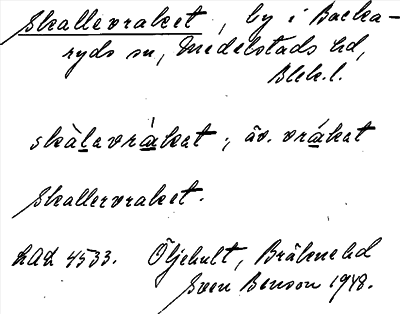 Skallevraket, by i Backa-
ryds sn, Medelstads hd,
Blek.l.
skàlavrákat; äv. vrákat
Skallervraket.
LAL 4533. Öljehult, Bräkne hd
Sven Benson 1948.